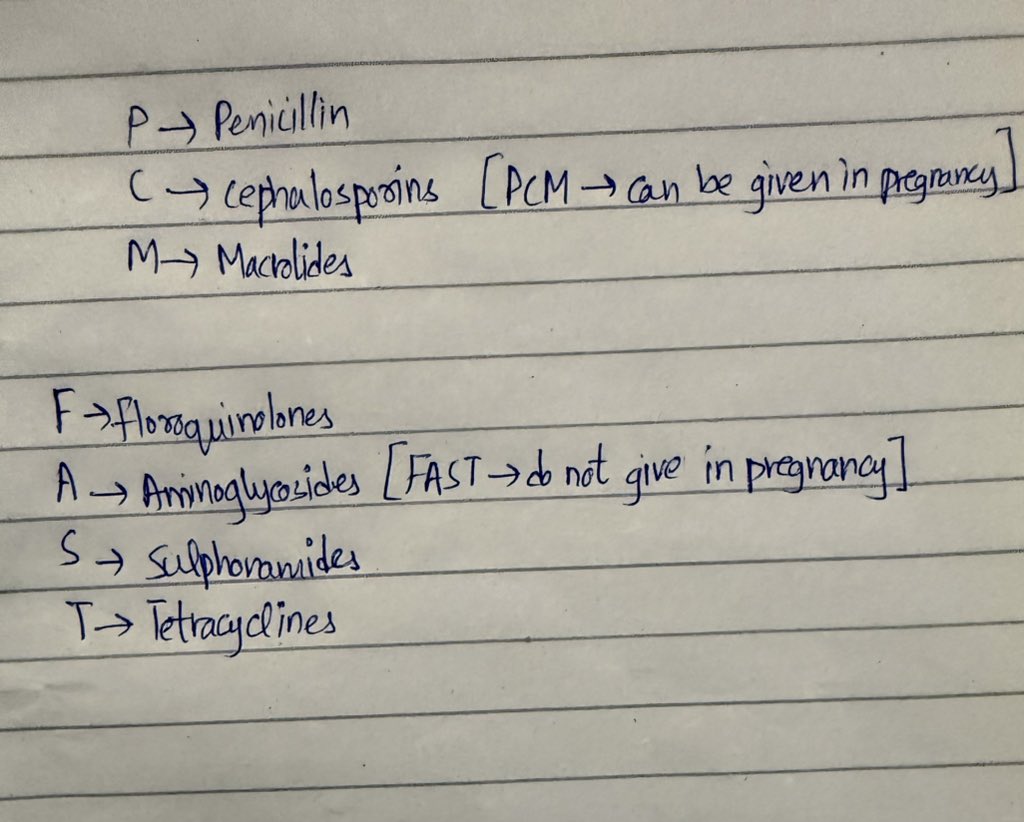 P → Penicillin
C → cephalosporins [PCM → can be given in pregnancy]
M → Macrolides
F → floroquinolones
A → Aminoglycosides [FAST → do not give in pregnancy]
S → sulphonamides
T → Tetracyclines